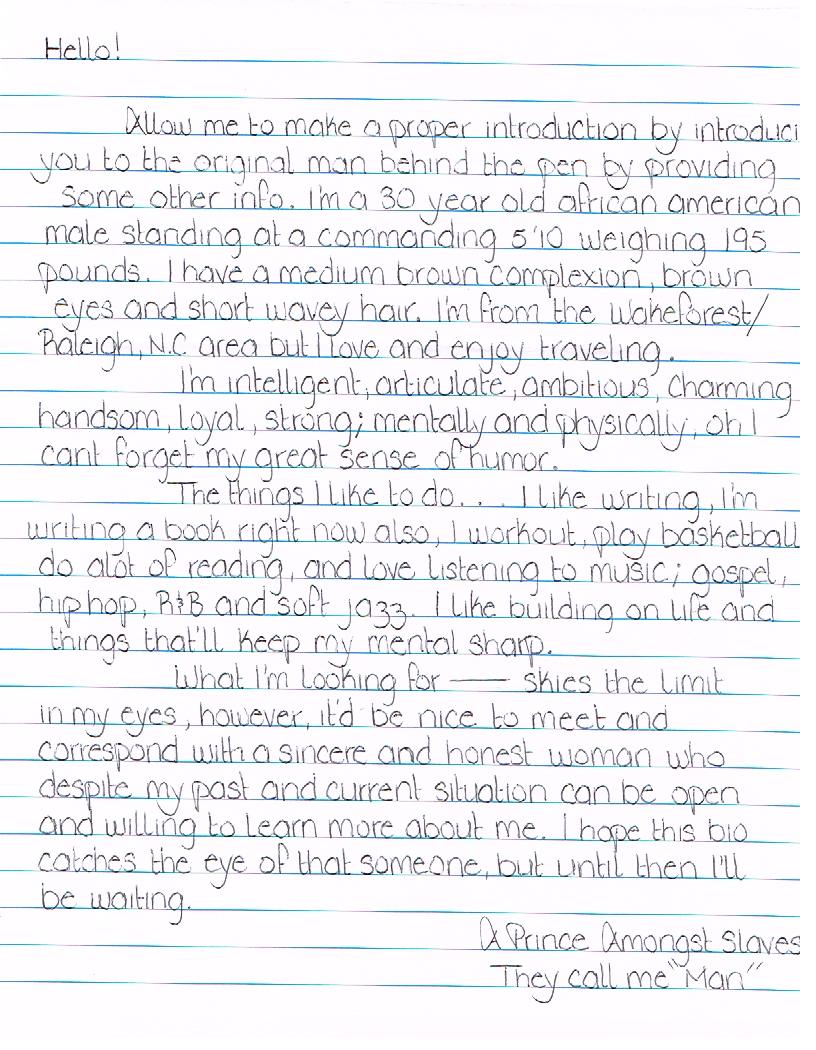 Hello!
Allow me to make a proper introduction by introduci
you to the original man behind the pen by providing
some other info. I'm a 30 year old african american
male standing at a commanding 5'10 weighing 195
pounds. I have a medium brown complexion, brown
eyes and short wavey hair. I'm from the Wakeforest/
Raleigh, N.C. area but I love and enjoy traveling.
I'm intelligent, articulate, ambitious, charming
handsom, loyal, strong; mentally and physically, oh I
cant forget my great sense of humor.
The things I like to do... I like writing, I'm
writing a book right now also, I workout, play basketball
do alot of reading, and love listening to music; gospel,
hip hop, R&B and soft jazz. I like building on life and
things that'll keep my mental sharp.
What I'm looking for — skies the limit
in my eyes, however, it'd be nice to meet and
correspond with a sincere and honest woman who
despite my past and current situation can be open
and willing to learn more about me. I hope this bio
catches the eye of that someone, but until then I'll
be waiting.
A Prince Amongst Slaves
They call me "Man"